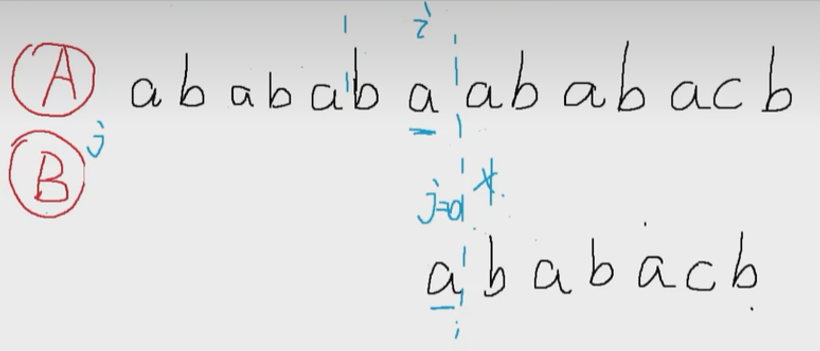 i
A a b a b a b a a b a b a c b
j
B
j=0
a b a b a c b